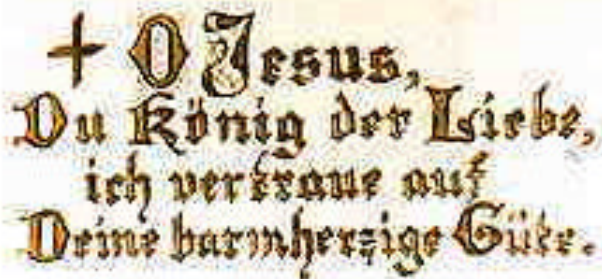 + O Jesus,
Du König der Liebe,
ich vertraue auf
Deine barmherzige Güte.